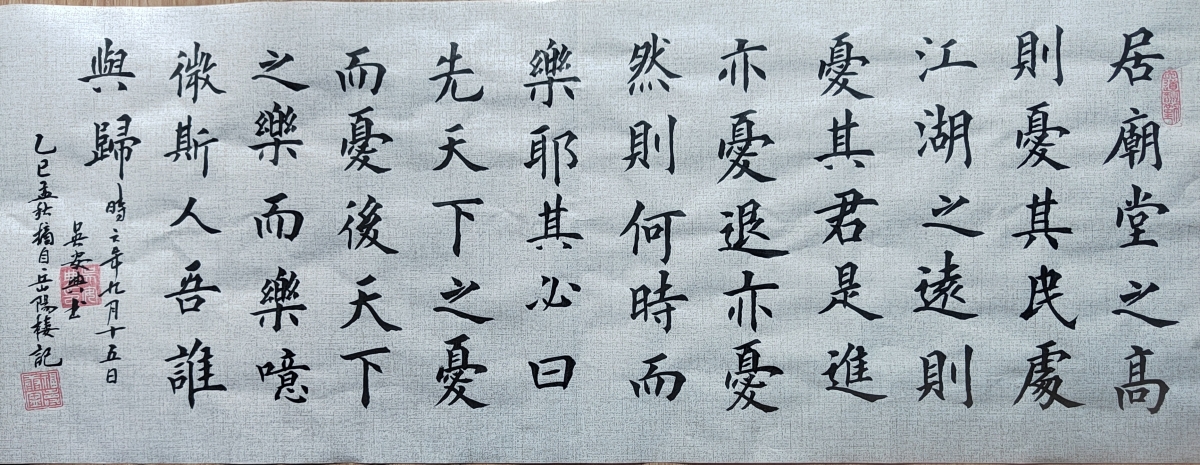 居廟堂之高
則憂其民處
江湖之遠則
憂其君是進
亦憂退亦憂
然則何時而
樂耶其必曰
先天下之憂
而憂後天下
之樂而樂噫
微斯人吾誰
與歸
時六年九月十五日
吳安典士
乙巳孟秋摘自岳陽樓記